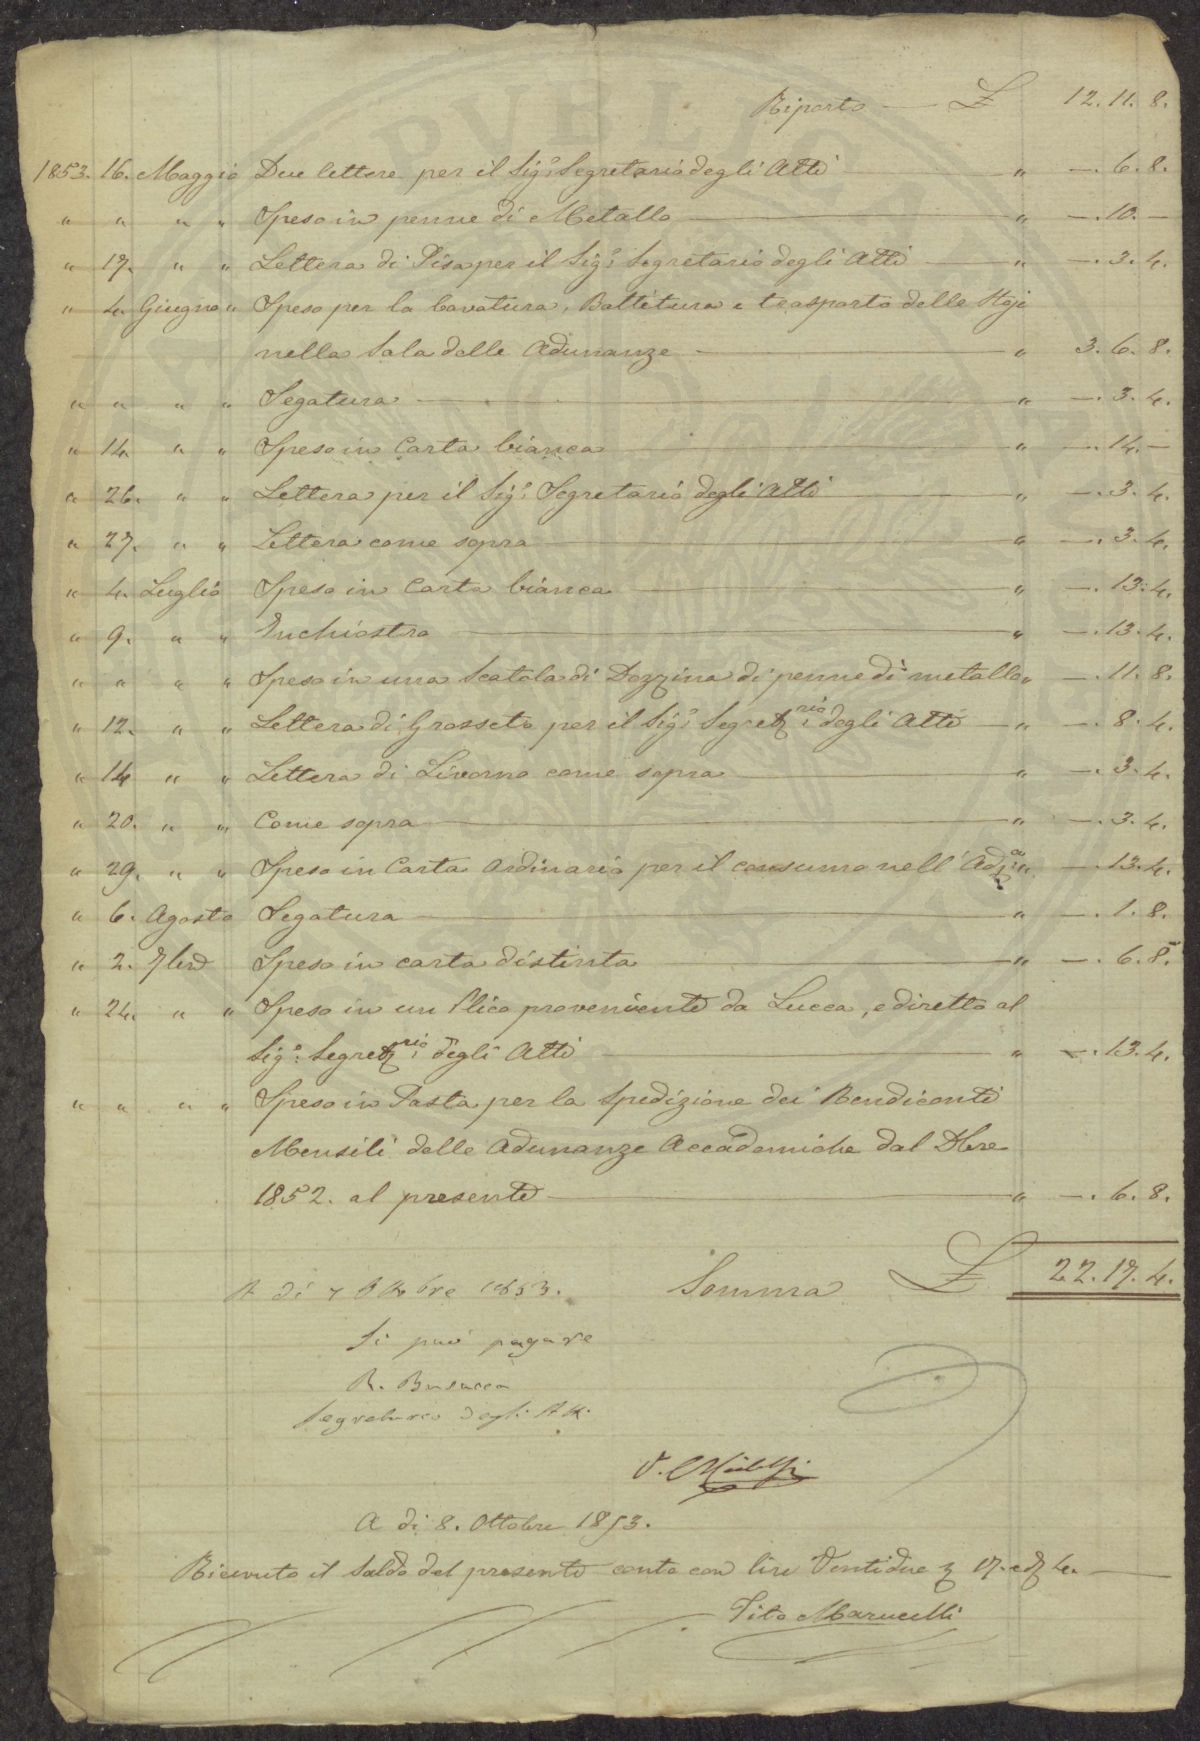 Riporto — £ 12. 11. 8.
1853. 16. Maggio Due lettere per il Sig:e Segretario degli Atti — " —. 6. 8.
" " " " Spesa in penne di Metallo — " —. 10. —
" 17. " " Lettera di Pisa per il Sig:e Segretario degli Atti — " —. 3. 4.
" 4. Giugno " Spesa per la lavatura, Battitura e trasporto delle Stoje
nella Sala delle Adunanze — " 3. 6. 8.
" " " " Segatura — " —. 3. 4.
" 14. " " Spesa in Carta bianca — " —. 14. —
" 26. " " Lettera per il Sig:e Segretario degli Atti — " —. 3. 4.
" 27. " " Lettera come sopra — " —. 3. 4.
" 4. Luglio Spesa in Carta bianca — " —. 13. 4.
" 9. " " Inchiostro — " —. 13. 4.
" " " " Spesa in una Scatola di Dozzina di penne di metallo " —. 11. 8.
" 12. " " Lettera di Grosseto per il Sig:e Segret:rio degli Atti — " —. 8. 4.
" 14 " " Lettera di Livorno come sopra — " —. 3. 4.
" 20. " " Come sopra — " —. 3. 4.
" 29. " " Spesa in Carta Ordinaria per il consumo nell' Ad:za " —. 13. 4.
" 6. Agosto Segatura — " —. 1. 8.
" 2. 7bre Spesa in carta distinta — " —. 6. 8.
" 24. " " Spesa in un Plico proveniente da Lucca, e diretto al
Sig:e Segret:rio degli Atti — " —. 13. 4.
" " " " Spesa in Posta per la Spedizione dei Rendiconti
Mensili delle Adunanze Accademiche dal Xbre
1852. al presente — " —. 6. 8.
Somma £ 22. 17. 4.
A di 7 Ottobre 1853.
Si può pagare
R. Busacca
Segretario degli Atti
A di 8. Ottobre 1853.
Ricevuto il Saldo del presente conto con lire Ventidue 17. e 4. —
Tito Marucelli